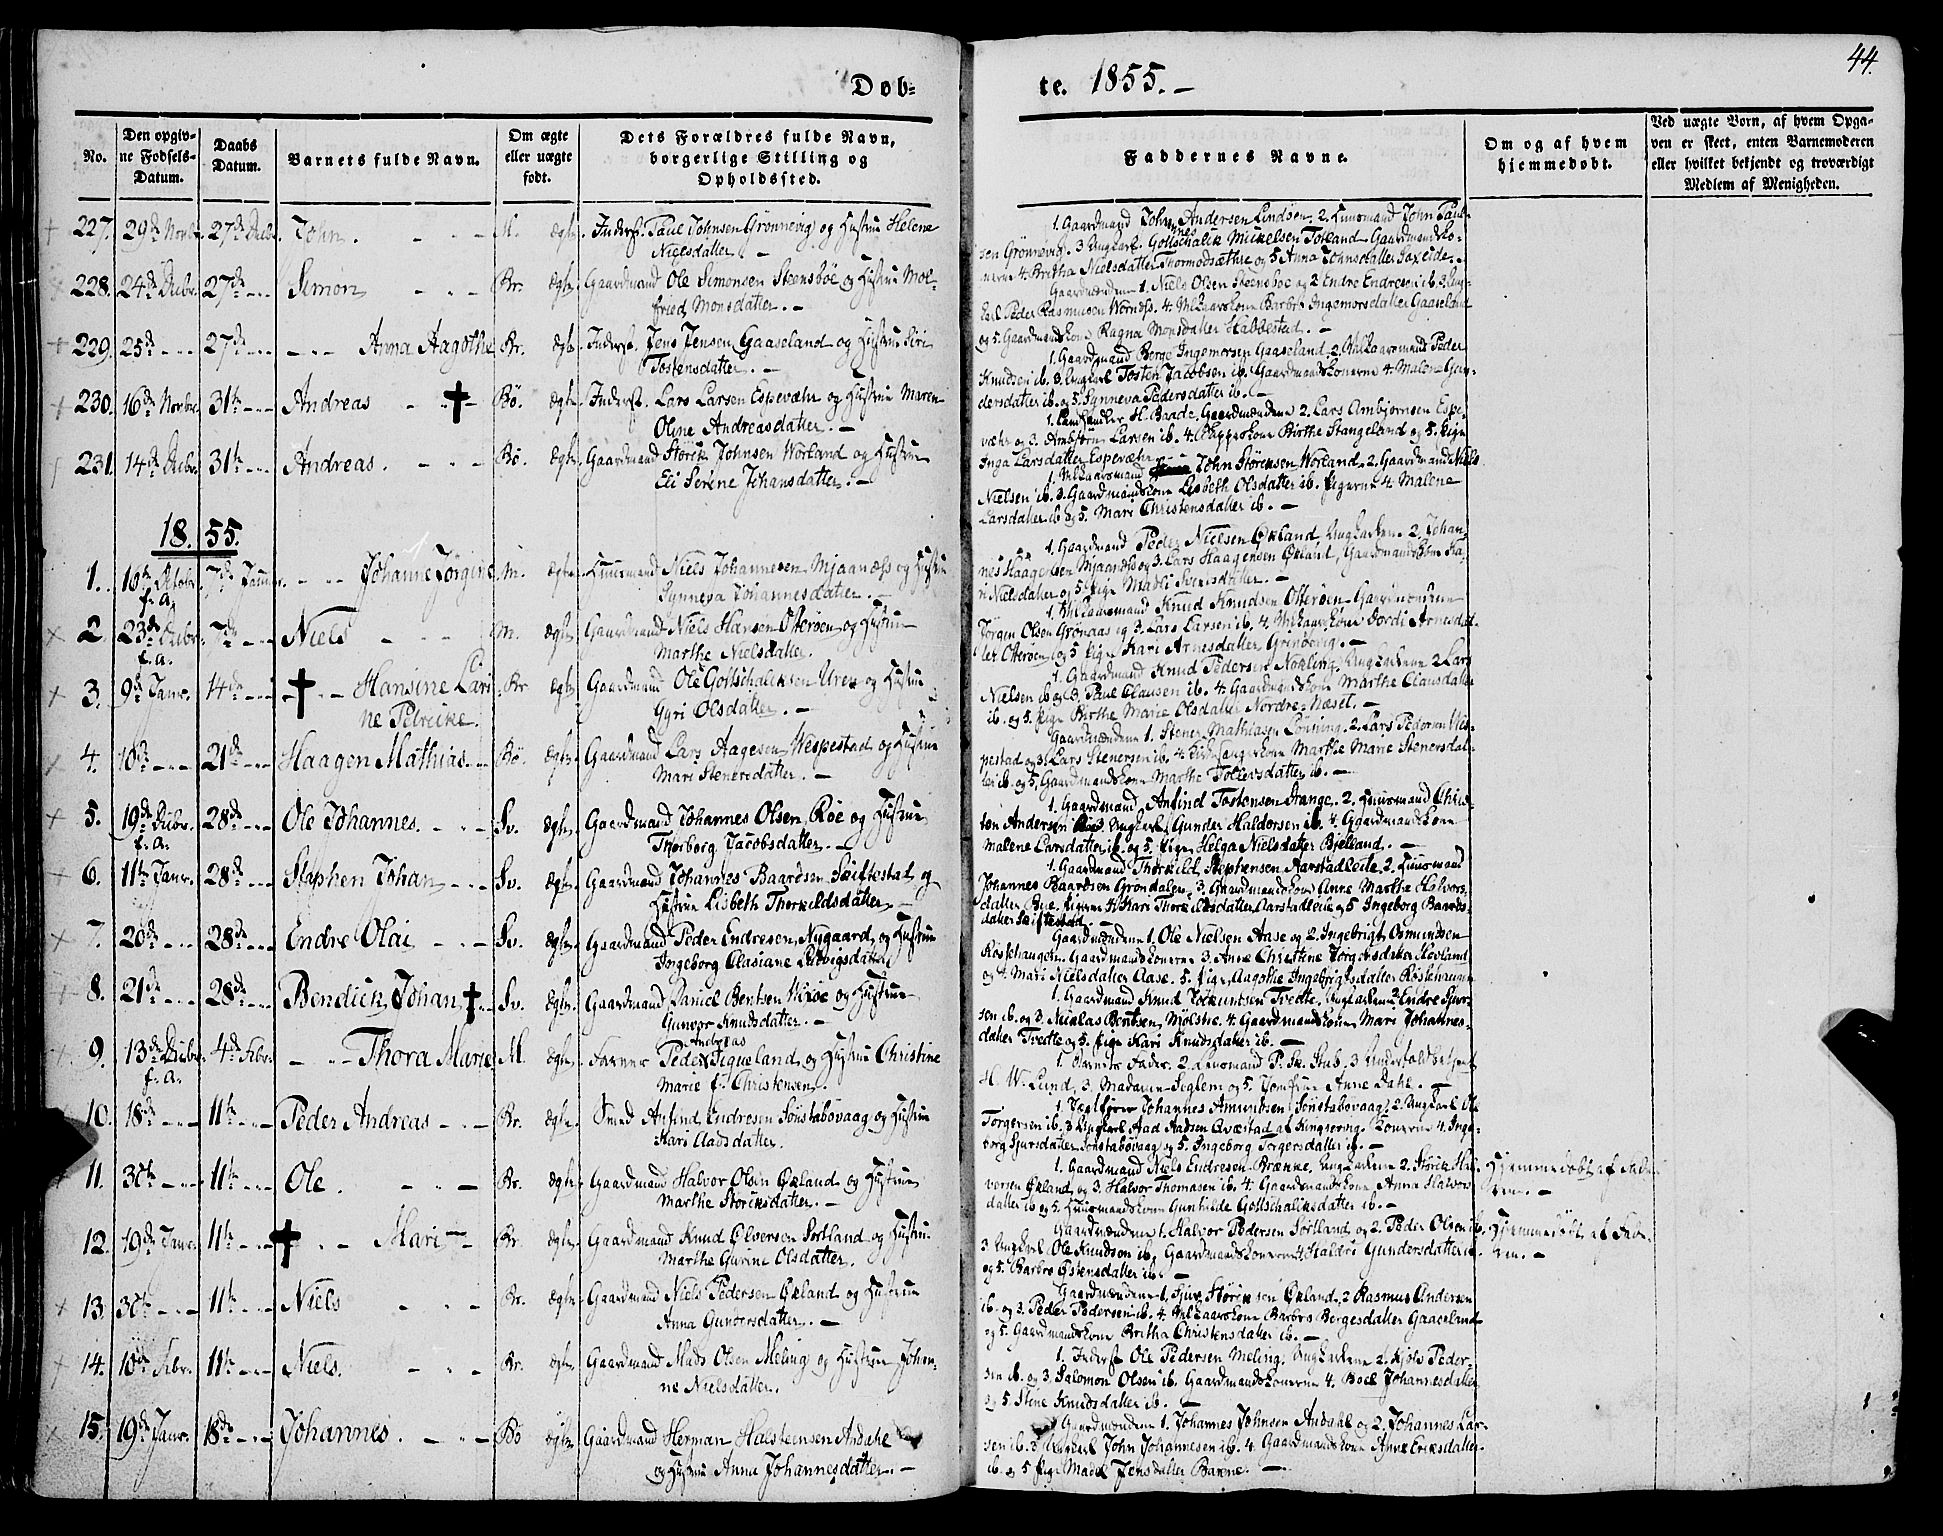 44.
Døb-
te. 1855.
No.
Den opgiv-
ne Fødsels-
Datum.
Daabs
Datum.
Barnets fulde Navn.
Om ægte
eller uægte
født.
Dets Forældres fulde Navn,
borgerlige Stilling og
Opholdssted.
Faddernes Navne.
Om og af hvem
hjemmedøbt.
Ved uægte Børn, af hvem Opga-
ven er skeet, enten Barnemoderen
eller hvilket bekjendt og troværdigt
Medlem af Menigheden.
227. 29de Novbr. 27de Decbr. John. M. Ægte. Inderst. Paul Johnsen Grønnevig og Hustrue Helene
Nielsdatter.
1. Gaardmand John Andersen Lindøen. 2. Huusmand John Paul-
sen Grønnevig. 3 Ungkarl. Gottschalk Mickelsen Totland. Gaardmandsko-
nerne 4. Britha Nielsdatter Thormodsæthre og 5 Anna Johnsdatter Saxeide.
228. 24de Decbr. 27de Simon Br. Ægte. Gaardmand Ole Simonsen Steensbøe og Hustrue Mol-
fried Monsdatter.
Gaardmændene 1. Niels Olsen Steensbøe og 2 Endre Endresen ib. 3. Ung-
karl Peder Rasmusen 4. Barbro Ingemorsdatter Gaaseland
og 5. Gaardmandskone Ragna Monsdatter Habbestad.
229. 25de 27de Anna Aagothe Br. Ægte. Inderst. Jens Jensen Gaaseland og Hustrue Siri
Tostensdatter.
1. Gaardmand Berge Ingemorsen Gaaseland. 2. Peder
Knudsen ib. 3. Ungkarl Tosten Jacobsen ib. Gaardmandskonerne 4. Malene Gun-
dersdatter ib. og 5. Synneva Pedersdatter ib.
230. 16de Novbr. 31te Andreas Bö. Ægte. Inderst. Lars Larsen Espevær og Hustrue Maren
Oline Andreasdatter.
1. Landhandler H. Baade. Gaardmændene 2. Lars Ambjørnsen Espe-
vær og 3. Ambjørn Larsen ib. 4. Birthe Stangeland og 5. Pige
Inga Larsdatter Espevær
231. 14de Decbr. 31te Andreas. Bö. Ægte. Gaardmand Størck Johnsen Worland og Hustrue
Eli Serine Johansdatter.
1. John Størcksen Worland. 2. Gaardmand Niels
Nielsen ib. 3. Gaardmandskone Lisbeth Olsdatter ib. Pigerne 4. Malene
Larsdatter ib og 5. Mari Christensdatter ib.
1855.
1. 16de Octobr. 7de Januar. Johanne Jörgine M. Ægte. Huusmand Niels Johannesen Mjaanæss og Hustrue
f. A. Synneva Johannesdatter.
1. Gaardmand Peder Nielsen Økland. Ungkarlene 2. Johan-
nes Haagensen Mjaanæs og 3. Lars Haagensen Økland, Gaardmandskone Ka-
ri Nielsdatter og 5. Pige Madli Svensdatter.
2 23de Decbr. 7de Niels M. Ægte. Gaardmand Niels Hansen Otterøen og Hustrue
f. A. Marthe Nielsdatter.
1. Knud Knudsen Otterøen. Gaardmændene
Jörgen Olsen Grønaas og 3. Lars Larsen ib. 4. Gordi Arnesdat-
ter Otterøen og 5 Pige Kari Arnesdatter Grindevig.
3. 9de Janr. 14de Hansine Lari- Br. Ægte. Gaardmand Ole Gottschalksen Urex og Hustrue
ne Petrike. Gyri Olsdatter.
1. Gaardmand Knud Pedersen Nökling. Ungkarlene 2 Lars
Nielsen ib og 3. Paul Clausen ib. 4. Gaardmandskone Marthe Clausdatter
ib. og 5. Pige Birthe Marie Olsdatter Nordre-Næset.
4. 10de 21de Haagen Mathias Bö. Ægte. Gaardmand Lars Aagesen Wespestad og Hustrue
Mari Stenersdatter.
Gaardmændene 1. Stener Mathiasen Lönning. 2. Lars Pedersen Wes-
pestad og 3. Lars Stenersen ib. 4. Marthe Marie Stenersdat-
ter ib. og 5. Gaardmandskone Marthe Tollersdatter ib.
5. 19de Decbr. 28de Ole Johannes. Sv. Ægte. Gaardmand Johannes Olsen Röe og Hustrue
f. A. Thorborg Jacobsdatter.
1. Gaardmand Anfind Tostensen Stange. 2. Huusmand Chris-
ten Andersen 3. Ungkarl Gunder Haldorsen ib. 4. Gaardmandskone
Malene Larsdatter ib. og 5. Pige Helga Nielsdatter Bjelland.
6. 11te Janr. 28de Staphen Johan Sv. Ægte. Gaardmand Johannes Baardsen Seiftestad og
Hustrue Lisbeth Thorkildsdatter.
1. Gaardmand Thorkild Stephensen Aarstadleite. 2. Huusmand
Johannes Baardsen Grøndalen. 3. Gaardmandskone Anne Martha Halvors-
datter Bue. Pigerne 4. Kari Thorkildsdatter Aarstadleite og 5 Ingeborg Baards-
datter Seiftestad.
7. 20de 28de Endre Olai Sv. Ægte. Gaardmand Peder Endresen Nygaard og Hustrue
Ingeborg Elasiane Ludvigsdatter.
Gaardmændene 1. Ole Nielsen Aase og 2. Ingebrigt Osmundsen
Röslehaugen. Gaardmandskonerne 3. Anne Christine Torgersdatter Hovland
og 4. Mari Nielsdatter Aase. 5. Pige Aagothe Ingebrigtsdatter Röslehaugen
8. 21de 28de Bendick Johan Sv. Ægte. Gaardmand Daniel Bentsen Wixöe og Hustrue
Gunvor Knudsdatter.
1. Gaardmand Knud Tvedte. Ungkarlene 2 Endre Sjur-
sen ib. og 3. Nicklas Bentsen Mjölstre. 4. Gaardmandskone Mari Johannes-
datter Tvedte og 5. Pige Kari Knudsdatter ib.
9. 13de Decbr. 4de Febr. Thora Marie M. Ægte. Farver Peder Andreas Tegneland og Hustrue Christine
f. A. Marie f. Christensen.
1. Barnets Fader. 2. Lensmand P. Sk. Stub. 3
H. W. Lund. 3. Madamme Seglem og 5. Jomfrue Anne Dahl.
10. 18de 11te Peder Andreas Br. Ægte. Smed Anfind Endresen Sönstabövaag og Hustrue
Kari Aadsdatter.
1. Johannes Amundsen Sönstabövaag. 2. Ungkarl Ole
Torgersen ib. 3 Ungkarl Aad Aadsen Qvæstad af Kingservig. Konerne 4. Inge-
borg Sjursdatter Sönstabövaag og 5. Ingeborg Torgersdatter ib.
11. 30te 11te Ole. Br. Ægte. Gaardmand Halvor Olsen Økland og Hustrue
Marthe Störcksdatter.
1. Gaardmand Niels Endresen Brænne. Ungkarlene 2. Störck Hal-
vorsen Økland og 3. Halvor Thomasen ib. 4. Gaardmandskone Anna Halvors-
datter ib og 5. Huusmandskone Gunhilde Gottschalksdatter ib.
Hjemmedøbt af Fade-
ren.
12. 19de Janr. 11te Mari Br. Ægte. Gaardmand Knud Elversen Sørtland og Hustrue
Marthe Gurine Olsdatter.
Gaardmændene 1. Halvor Pedersen Sørtland og 2. Peder Olsen ib.
3 Ungkarl Ole Knudsen ib. Gaardmandskonerne 4. Gundersdatter ib.
og 5. Barbro Östensdatter ib.
Hjemmedøbt af Fade-
ren.
13. 30te 11te Niels Br. Ægte. Gaardmand Niels Pedersen Økland og Hustrue
Anna Gundersdatter.
Gaardmændene 1. Sjur Störcksen Økland, 2 Rasmus Andersen
ib. og 3. Peder Pedersen ib. 4. Barbro Bergesdatter Gaaseland
og 5. Gaardmandskone Britha Christensdatter ib.
14. 10de Febr. 11te Niels. Br. Ægte. Gaardmand Mads Olsen Meling og Hustrue Johan-
ne Nielsdatter.
1. Inderst Ole Pedersen Meling. Ungkarlene 2. Kjöls Peder-
sen ib. og 3. Salomon Olsen ib. Gaardmandskonerne 4. Boel Johannesdatter
og 5. Stine Knudsdatter ib.
15. 19de Janr. 18de Johannes. Bö Ægte. Gaardmand Herman Halsteensen Andahl
og Hustrue Anna Johannesdatter.
Gaardmændene 1. Johannes Johnsen Andahl og 2. Johannes Lar-
sen ib. 3 Ungkarl John Johannesen ib. 4. Gaardmandskone Anne Eriksdatter
ib. og 5 Pige Madel Jensdatter Barane.